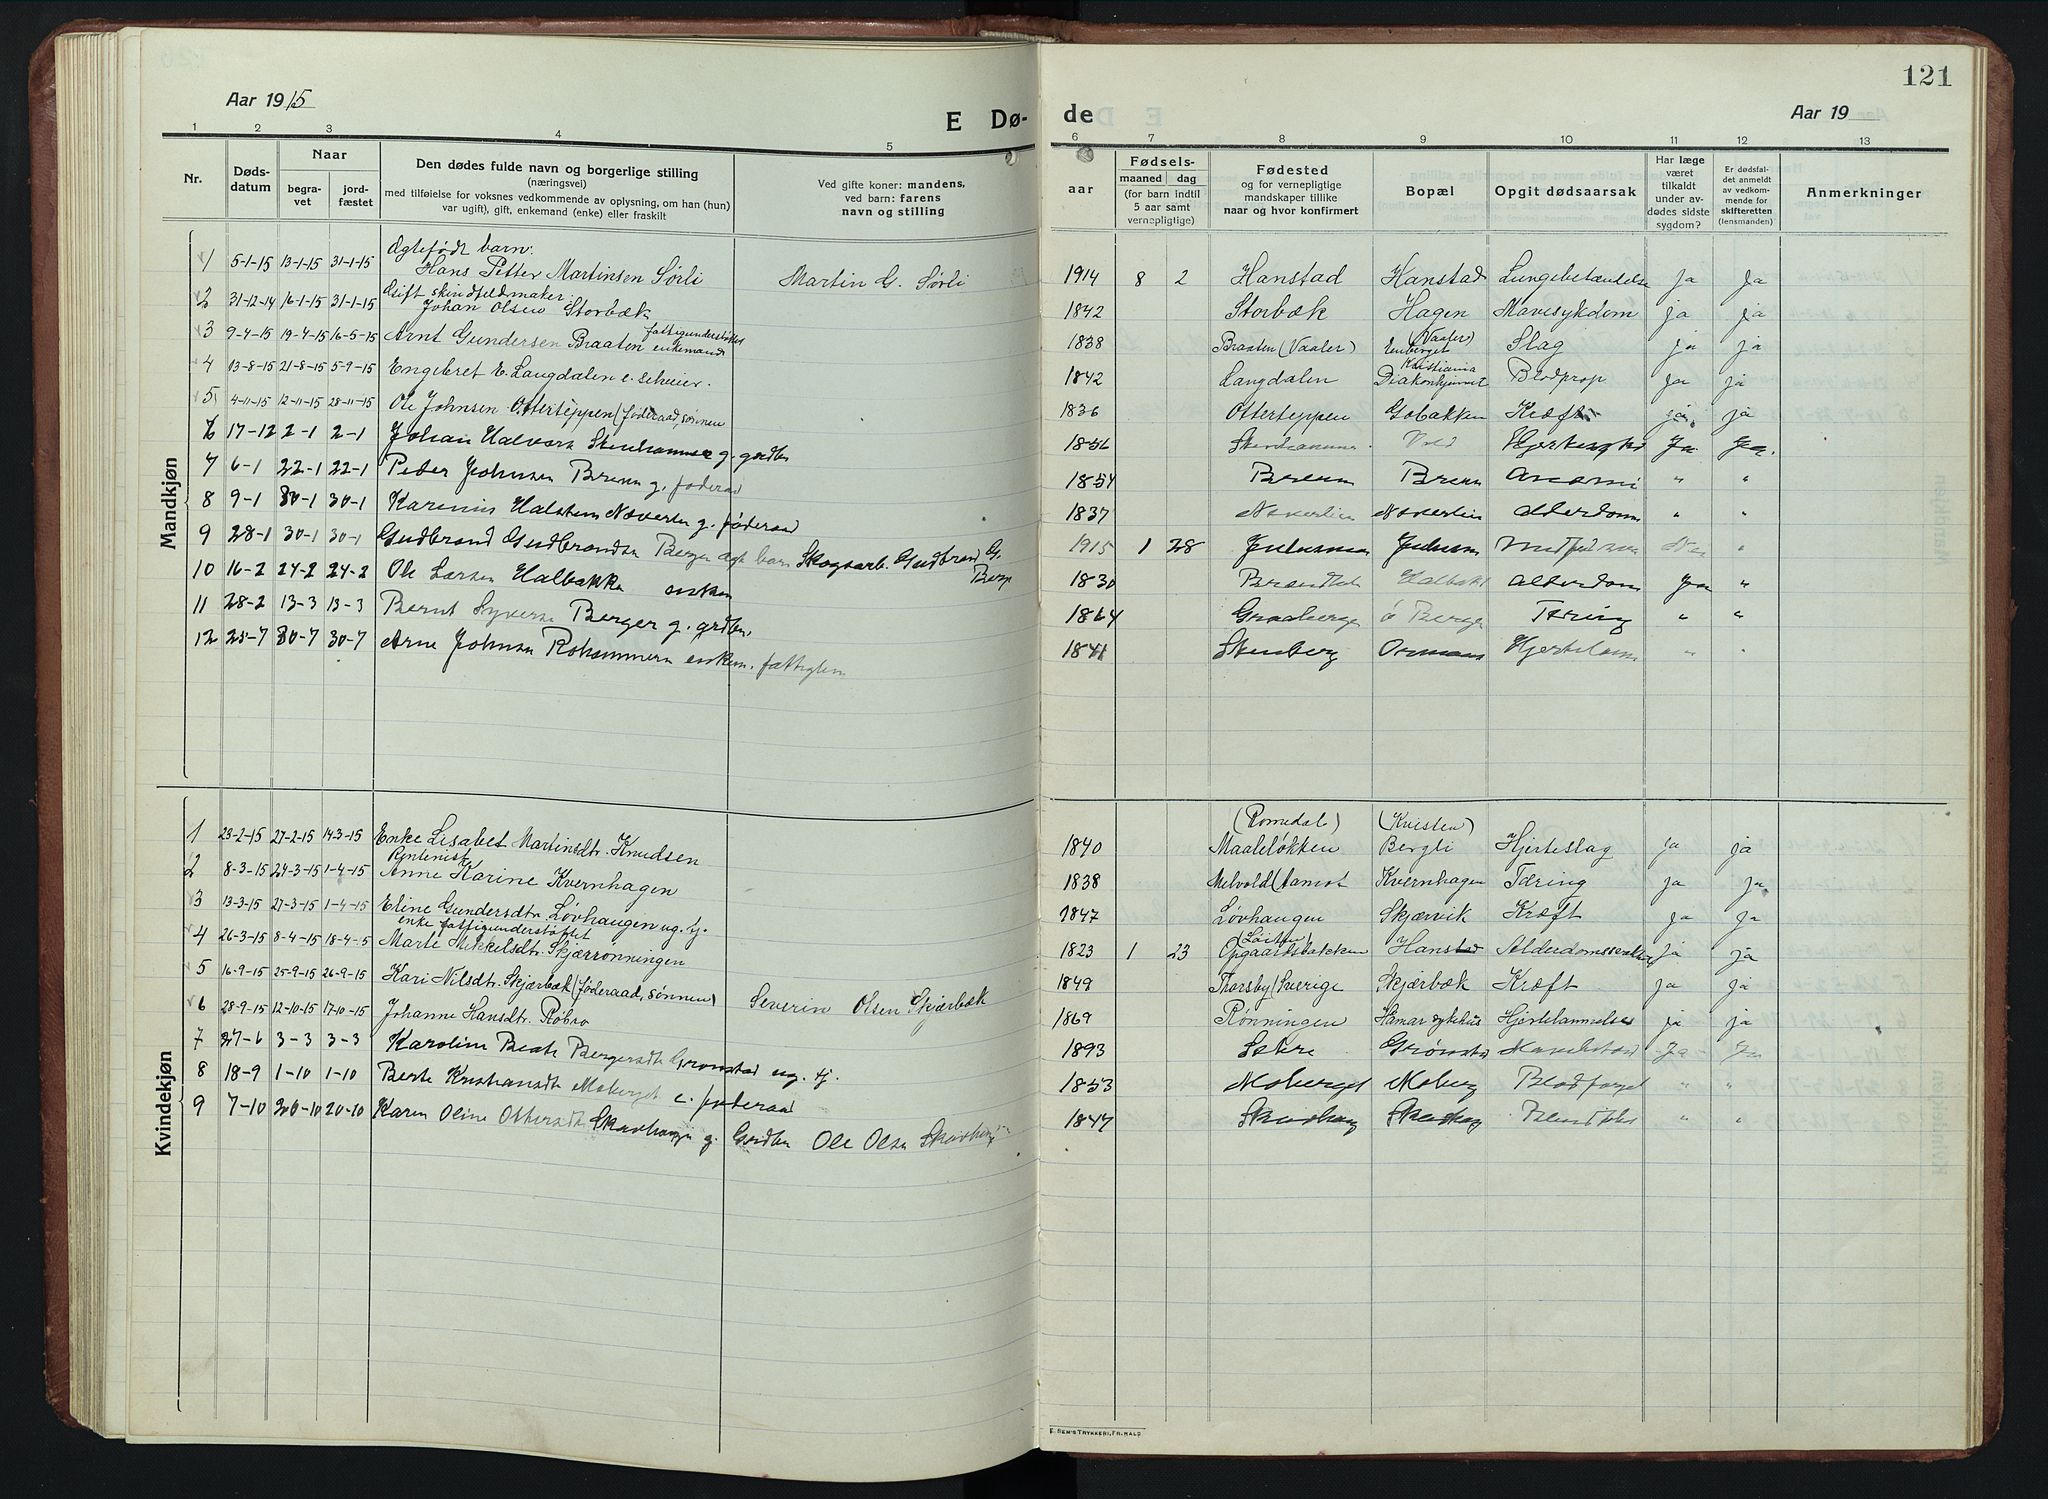 121
Aar 1915
E Dø-
de
Aar 19
1 2 3 4 5 6 7 8 9 10 11 12 13
Nr.
Døds-
datum
Naar
begra-
vet
jord-
fæstet
Den dødes fulde navn og borgerlige stilling
(næringsvei)
med tilføielse for voksnes vedkommende av oplysning, om han (hun)
var ugift), gift, enkemand (enke) eller fraskilt
Ved gifte koner: mandens,
ved barn: farens
navn og stilling
Fødsels-
aar
maaned dag
(for barn indtil
5 aar samt
vernepligtige)
Fødested
og for vernepligtige
mandskaper tillike
naar og hvor konfirmert
Bopæl
Opgit dødsaarsak
Har læge
været
tilkaldt
under av-
dødes sidste
sygdom?
Er dødsfal-
det anmeldt
av vedkom-
mende for
skifteretten
(lensmanden)
Anmerkninger
Mandkjøn
Ægtefødt barn.
1 5-1-15 13-1-15 31-1-15 Hans Petter Martinsen Sørli Martin G. Sørli 1914 8 2 Hanstad Hanstad Lungebetændelse Ja Ja
Gift skindfeldmaker.
2 31-12-14 16-1-15 31-1-15 Johan Olsen Storbæk 1842 Storbæk Hagen Mavesykdom ja ja
fattigunderstøttet (Vaaler)
3 9-4-15 19-4-15 16-5-15 Arnt Gundersen Braaten enkemand 1838 Braaten (Vaaler) Enberget Slag ja ja
Kristiania
4 13-8-15 21-8-15 5-9-15 Engebret E. Langdalen e. seleier. 1842 Langdalen Diakonhjemmet Blodprop Ja ja
5 4-11-15 12-11-15 28-11-15 Ole Johnsen Otterteppen (føderaad, sønnen 1836 Otterteppen Gobakken Kræft ja ja
6 17-12 2-1 2-1 Johan Halvors Stenhammer g. grdbr 1856 Hjertesykd Ja Ja.
7 6-1 22-1 22-1 Peder Johnsen Brenn g. føderaad 1854 Brenn Brenn Anæmi " "
8 9-1 30-1 30-1 Karenius Halstens Næverlien g. føderaad 1837 Næverlien Næverlien Alderdom " "
9 28-1 30-1 30-1 Gudbrand Gudbrandsen Berger ægt barn Skogsarb. Gudbrand G. Berger 1915 1 28 Nei "
10 16-2 24-2 24-2 Ole Larsen Halbakke enkem 1830 Halbakk Alderdom Ja "
11 28-2 13-3 13-3 Bernt Syvers Berger g. grdbr. 1864 Graaberget ö Berger Tæring " "
12 25-7 30-7 30-7 Arne Johnsen enkem. fattiglem 1841 Stenberg Hjertelam " "
Kvindekjøn
(Romedal) (Kvisten)
1 23-2-15 27-2-15 14-3-15 Enke Lisabet Martinsdtr. Knudsen 1840 Maaleløkken Bergli Hjerteslag Ja ja
Rentenist
2 8-3-15 24-3-15 1-4-15 Anne Karine Kvernhagen 1838 Melvold (Aamot Kvernhagen Tæring ja ja
3 13-3-15 27-3-15 1-4-15 Eline Gundersdtr. Løvhaugen ug. tj. 1847 Løvhaugen Skjærvik Kræft ja ja
enke fattigunderstøttet (Løiten)
4 26-3-15 8-4-15 18-4-15 Marte Mikkelsdtr. Skjærrønningen 1823 1 23 Opgaardsbakken Hanstad Alderdomssvakhet ja ja
5 16-9-15 25-9-15 26-9-15 Kari Nilsdtr. Skjærbæk (føderaad, sønnen) Severin Olsen Skjærbæk 1849 Thorsby (Sverige Skjærbæk Kræft ja ja
6 28-9-15 12-10-15 17-10-15 Johanne Hansdtr. Røbro 1869 Rønningen Hamar sykehus Hjertelammelse ja ja
7 27-6 3-3 3-3 Karoline Beate Bergersdtr Grønstad ug. tj. 1893 Setre Grønstad Ja
8 18-9 1-10 1-10 Berte Kristiansdtr Moberget e. føderaad 1853 Moberget Moberg " "
9 7-10 20-10 20-10 Karen Oline Ottersdtr Skavhaugen g. Grdbr Ole Olsen Skavhaugen 1847 Skavhaug Skavhaug " "
E. SEM'S TRYKKERI, FR.HALD